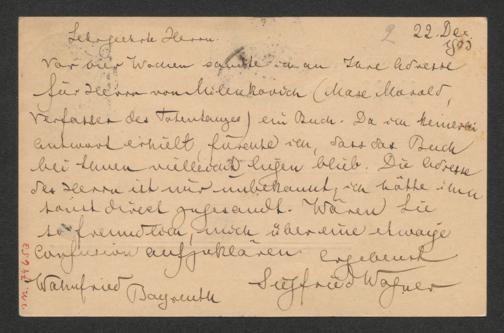 2 22. Dec
1903
Sehr geehrte Herrn.
Vor vier Wochen sandte ich an Ihre Adresse
für Herrn von Milenkovich (Max Morold,
Verfasser des Totentanzes) ein Buch. Da ich keinerlei
Antwort erhielt, fürchte ich, dass das Buch
bei Ihnen vielleicht liegen blieb. Die Adresse
des Herrn ist mir unbekannt, ich hätte ihm
sonst direct zugesandt. Wären Sie
so freundlich, mich über eine etwaige
Confusion aufzuklären
Ergebenst
Wahnfried Siegfried Wagner
Bayreuth